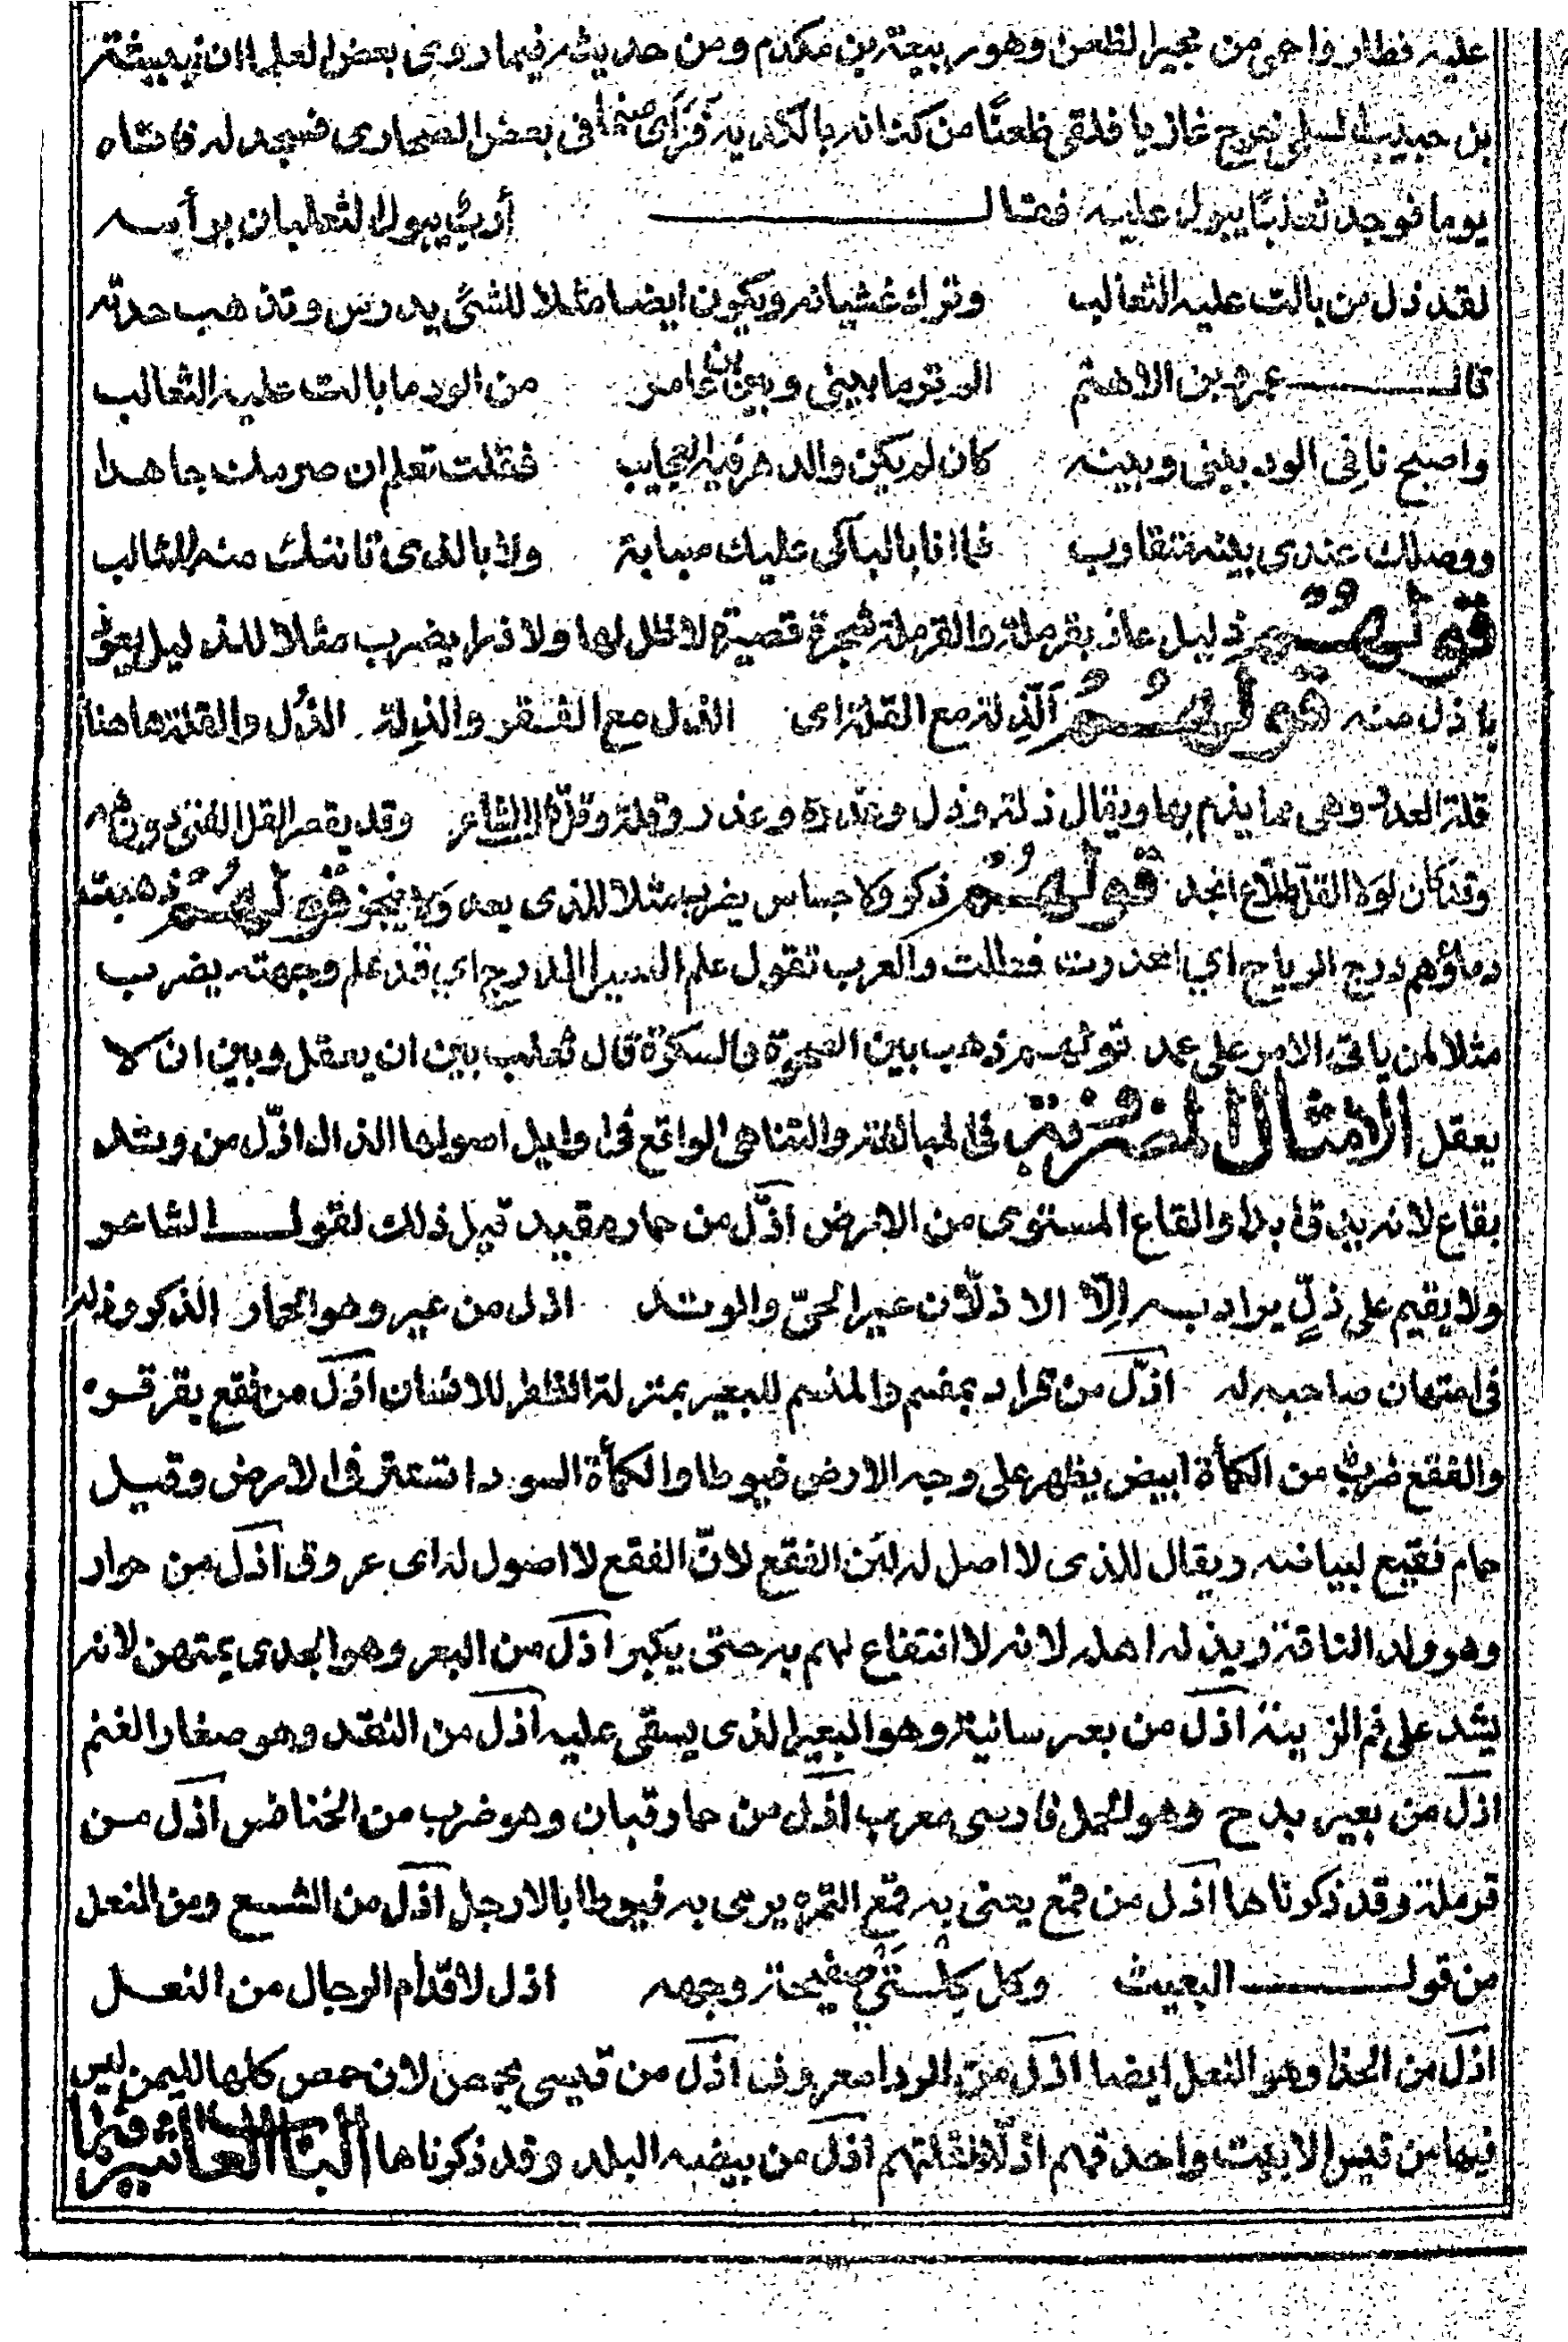 عليه فطار واحمى من مجير الظعن وهو ربيعة بن مكدم ومن حديثه فيما روى بعض العلما ان نبيشة
بن حبيب السلمى خرج غازيا فلقى ظعنًا من كنانه بالكديد فرَأى صنمًا فى بعض الصحارى فسجد له فاتاه
يوما فوجد ثعلبًا يبول عليه فقال أربٌ يبول الثعلبان برأسه
لقد ذل من بالت عليه الثعالب وترك غشيانه ويكون ايضا مثلا للشئ يدرس وتذهب حدته
قال عمرو بن الاهتم الم تر ما بينى وبين بن عامر من الود ما بالت عليه الثعالب
واصبح نافى الود بينى وبينه كان لم يكن والدهر فيه العجايب فقلت تعلم ان صرمك جاهدا
ووصلك عندى بينه متقارب فما انا بالباكى عليك صبابة ولا بالذى تاتيك منه المثالب
قولهم ذليل عاذ بقرملة والقرملة شجرة قصيرة لا ظل لها ولا ذرا يضرب مثلا للذليل يعوذ
باذل منه قولهم الذلة مع القلة اى الذل مع الفقر والذلة الذُل والقلة هاهنا
قلة العدد وهى مما يذم بها ويقال ذلة وذل وعذرة وعذر وقلة وقل قال الشاعر وقد يقصر القل الفتى دون همه
وقد كان لولا القل طلّاع انجد قولهم ذكر ولا حساس يضرب مثلا للذى يعد ولا ينجز قولهم ذهبت
دماؤهم درج الرياح اي اهدرت فطلت والعرب تقول علم السيل الدرج اي قد علم وجهته يضرب
مثلا لمن ياتى الامر على عمد قولهم ذهب بين الصحوة والسكرة قال ثعلب بين ان يعقل وبين ان لا
يعقل الامثال المضروبة فى المبالغة والتناهى الواقع فى اوايل اصولها الذال اذلّ من وتد
بقاع لانه يدق ابدا والقاع المستوى من الارض اذلّ من حمار مقيد قيل ذلك لقول الشاعر
ولا يقيم على ذلٍّ يراد به اِلّا الاذلّان عير الحىّ والوتد اذل من عير وهو الحمار الذكر وذله
فى امتهان صاحبه له اذلّ من قراد بمنسم والمنسم للبعير بمنزلة الظفر للانسان اذل من فقع بقرقره
والفقع ضربٌ من الكمأة ابيض يظهر على وجه الارض فيوطا والكمأة السودا تستتر فى الارض وقيل
حمام فقيع لبياضه ويقال للذى لا اصل له لبن الفقع لانّ الفقع لا اصول له اى عروق اذل من حوار
وهو ولد الناقة ويذله اهله لانه لا انتفاع لهم به حتى يكبر اذل من البعر وهو الجدى يمتهن لانه
يشد على فم الزبية اذل من بعير سانية وهو البعير الذى يسقى عليه اذل من النقد وهو صغار الغنم
اذل من بعير بدح وهو الحمل فارسى معرب اذل من حمار قبان وهو ضرب من الخنافس اذل من
قرملة وقد ذكرناها اذل من قمع يعنى به قمع التمره يرمى به فيوطا بالارجل اذل من الشسع ومن النعل
من قول البعيث وكل كليبىّ صفيحة وجهه اذل لاقدام الرجال من النعل
اذل من الحذا وهو النعل ايضا اذل من الردا معروف اذل من قيسى بحمص لان حمص كلها لليمن ليس
فيها من قيس الا بيت واحد فهم اذلّا لقلتهم اذل من بيضه البلد وقد ذكرناها الباب العاشر فيما